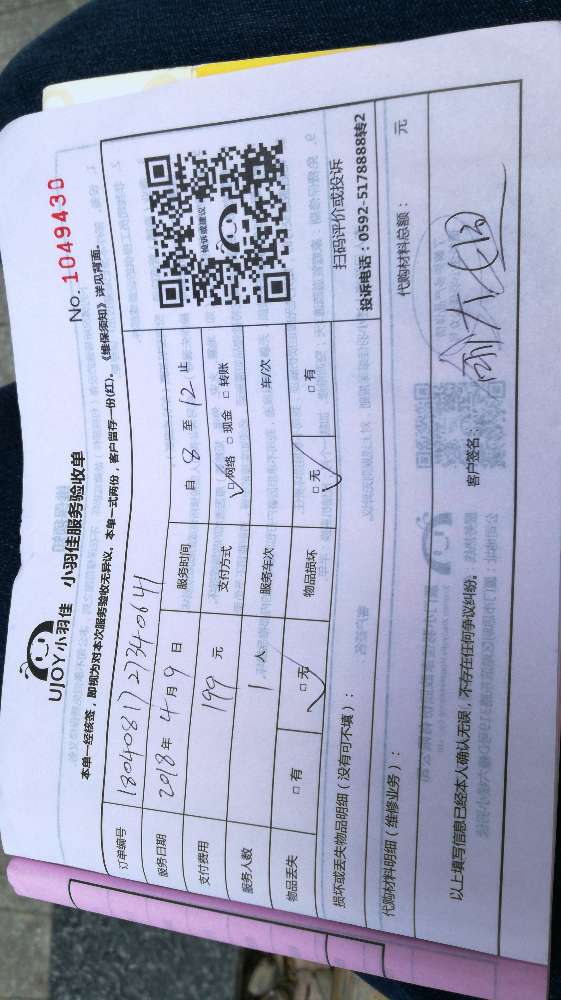 UJOY小羽佳 小羽佳服务验收单
No. 1049430
本单一经核签，即视为对本次服务验收无异议、本单一式两份，客户留存一份(红)。《维保须知》详见背面。
订单编号 1804081727340641
服务日期 2018年 4月 9日 服务时间 自 8 至 12 止
支付费用 199 元 支付方式 □网络 □现金 □转账
服务人数 1人 服务车次 车/次
物品丢失 □有 □无 物品损坏 □无 □有
投诉或建议
扫码评价或投诉
投诉电话：0592-5178888转2
损坏或丢失物品明细（没有可不填）：
代购材料明细（维修业务）： 代购材料总额： 元
以上填写信息已经本人确认无误，不存在任何争议纠纷。 客户签名：